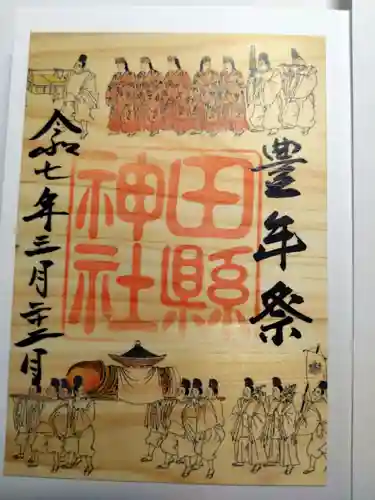 豊年祭
田縣
神社
令和七年三月二十二日